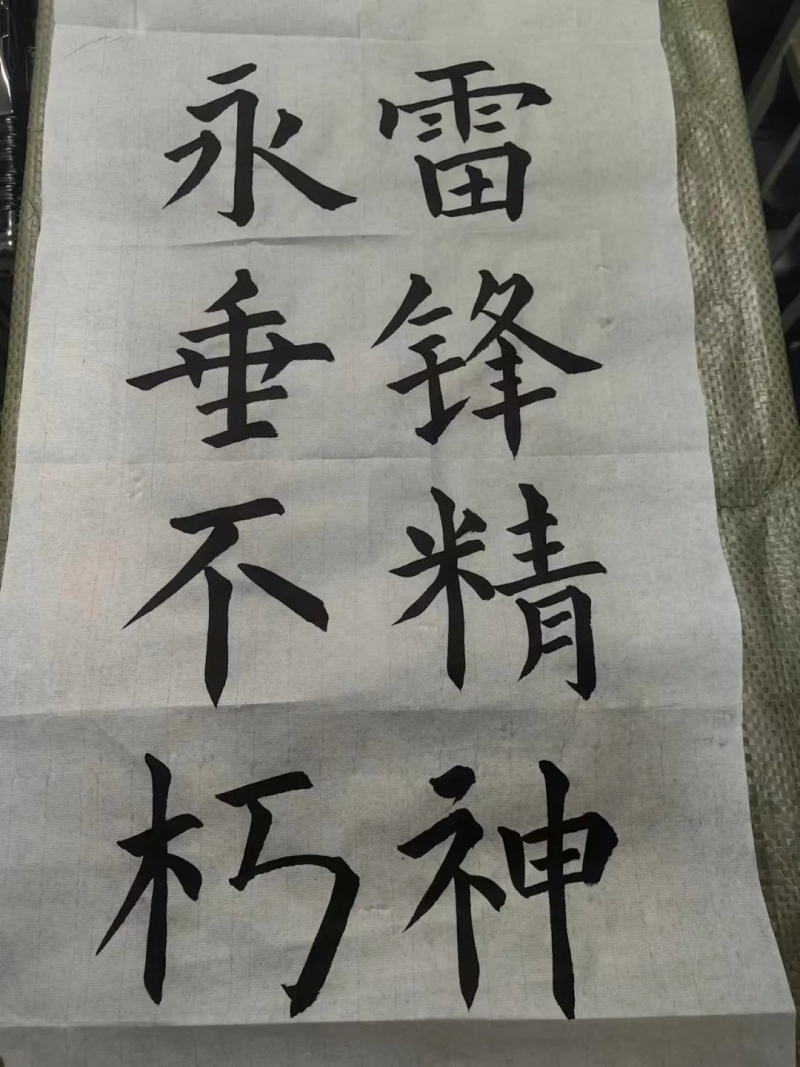 雷锋精神
永垂不朽